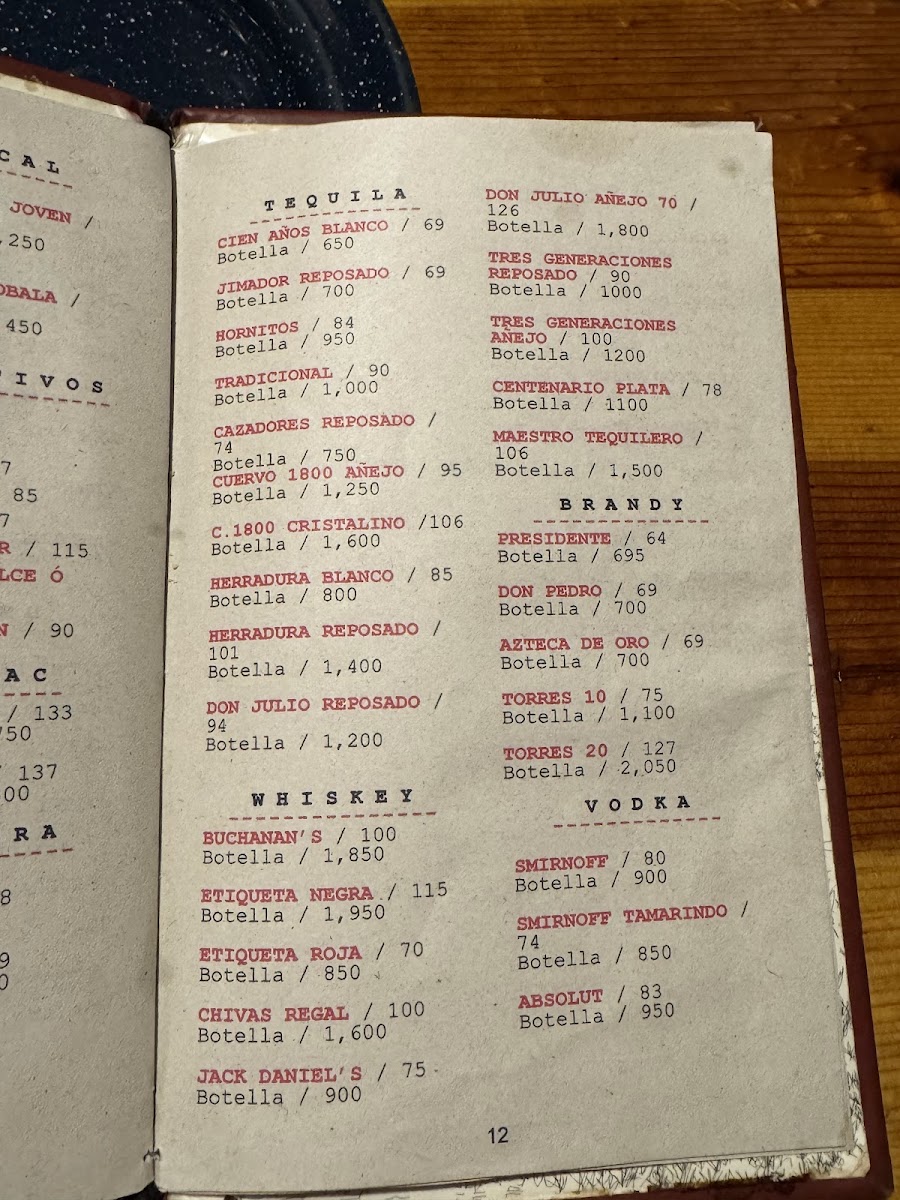 CAL
JOVEN /
,250
OBALA /
450
TIVOS
7
85
7
R / 115
LCE Ó
N / 90
AC
/ 133
750
/ 137
00
RA
8
9
0
TEQUILA
CIEN AÑOS BLANCO / 69
Botella / 650
JIMADOR REPOSADO / 69
Botella / 700
HORNITOS / 84
Botella / 950
TRADICIONAL / 90
Botella / 1,000
CAZADORES REPOSADO /
74
Botella / 750
CUERVO 1800 AÑEJO / 95
Botella / 1,250
C.1800 CRISTALINO /106
Botella / 1,600
HERRADURA BLANCO / 85
Botella / 800
HERRADURA REPOSADO /
101
Botella / 1,400
DON JULIO REPOSADO /
94
Botella / 1,200
WHISKEY
BUCHANAN'S / 100
Botella / 1,850
ETIQUETA NEGRA / 115
Botella / 1,950
ETIQUETA ROJA / 70
Botella / 850
CHIVAS REGAL / 100
Botella / 1,600
JACK DANIEL'S / 75
Botella / 900
DON JULIO AÑEJO 70 /
126
Botella / 1,800
TRES GENERACIONES
REPOSADO / 90
Botella / 1000
TRES GENERACIONES
AÑEJO / 100
Botella / 1200
CENTENARIO PLATA / 78
Botella / 1100
MAESTRO TEQUILERO /
106
Botella / 1,500
BRANDY
PRESIDENTE / 64
Botella / 695
DON PEDRO / 69
Botella / 700
AZTECA DE ORO / 69
Botella / 700
TORRES 10 / 75
Botella / 1,100
TORRES 20 / 127
Botella / 2,050
VODKA
SMIRNOFF / 80
Botella / 900
SMIRNOFF TAMARINDO /
74
Botella / 850
ABSOLUT / 83
Botella / 950
12